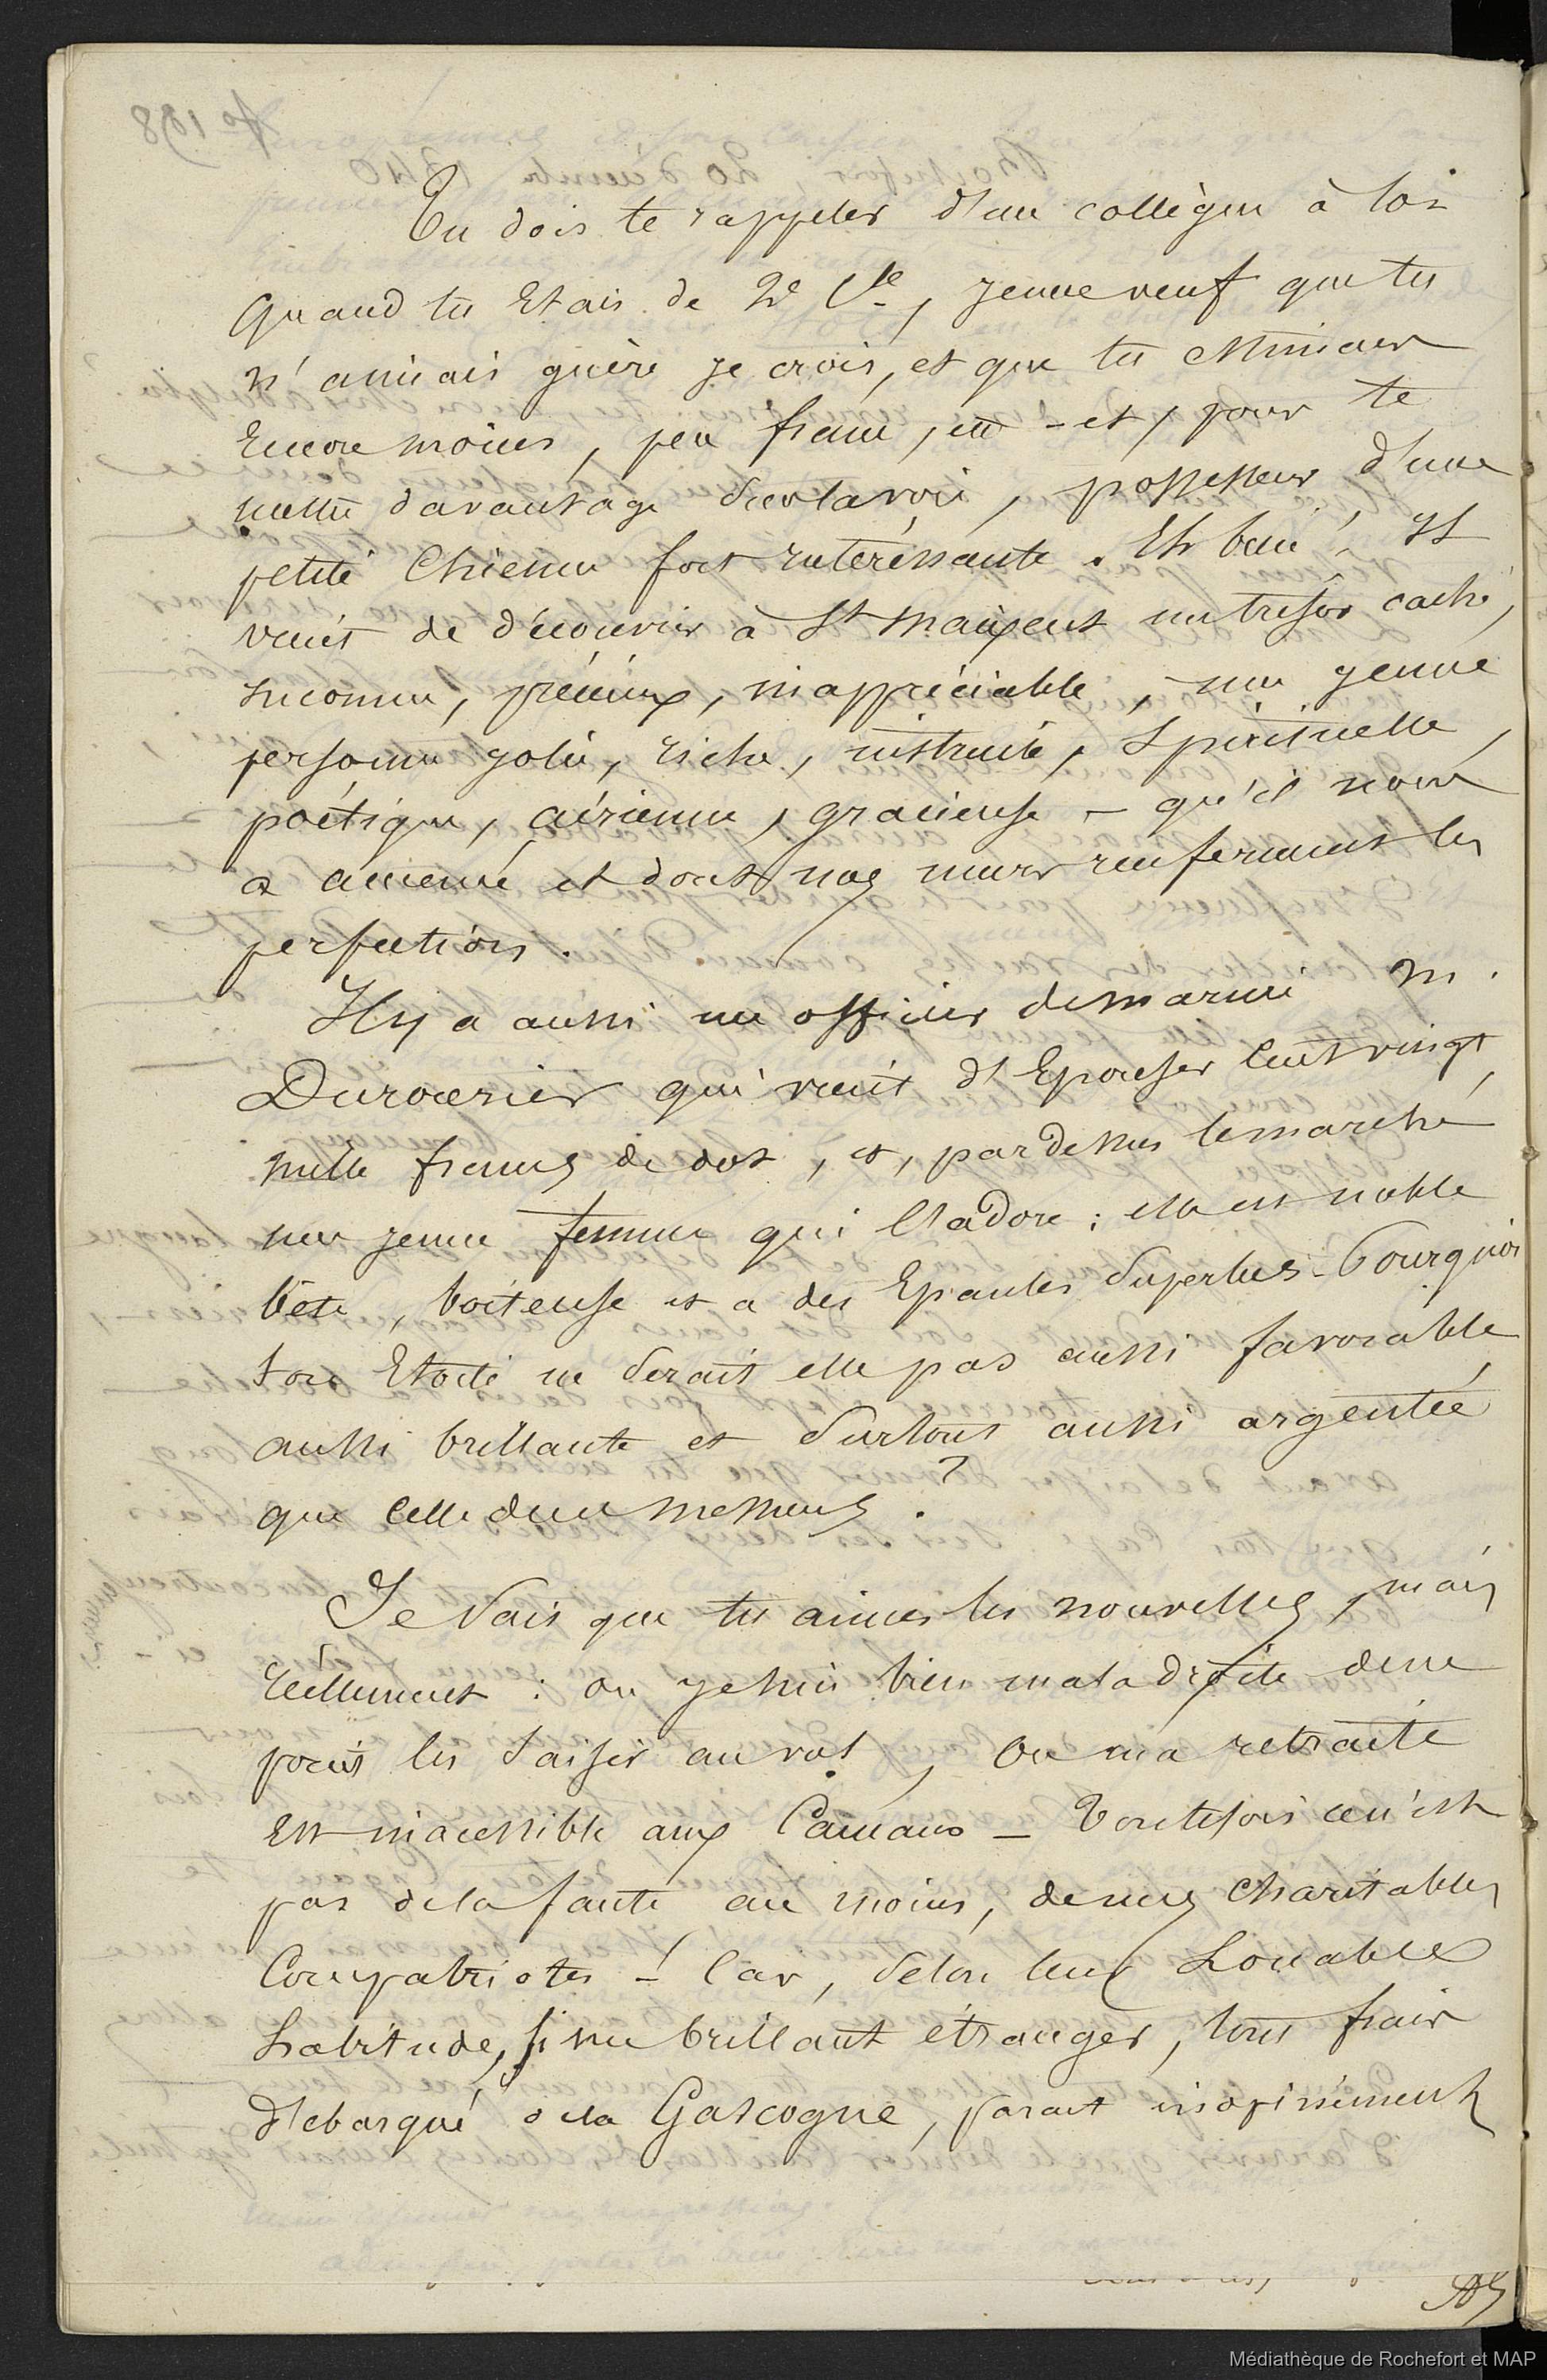 Tu dois te rappeler d'un collègue à toi
quand tu étais de 2e Cl<sup>e</sup>, jeune veuf que tu
n'aimais guère je crois, et que tu estimais
encore moins, peu franc, - et, pour te
mettre davantage sur la voie, possesseur d'une
petite chienne fort intéressante. Eh bien! il
vient de découvrir à St Maixent un trésor caché,
inconnu, précieux, inappréciable, une jeune
personne jolie, riche, instruite, spirituelle,
poétique, aérienne, gracieuse - qu'il nous
a amené et dont nos murs renferment les
perfections.
Il y a aussi un officier de marine M.
Durocrier qui vient d'épouser cent vingt
mille francs de dot, et, par dessus le marché
une jeune femme qui l'adore; elle est noble
bête, boiteuse et a des épaules superbes. Pourquoi
ton étoile ne serait elle pas aussi favorable,
aussi brillante et surtout aussi argentée
que celle de ces messieurs?
Je sais que tu aimes les nouvelles, mais
réellement: ou je suis bien maladroite de ne
point les saisir au vol, ou ma retraite
est inaccessible aux cancans - Toutefois ce n'est
pas de la faute au moins, de mes charitables
compatriotes! - Car, selon leur louable
habitude, si un brillant étranger, tout frais
débarqué de la Gascogne, parait inopinément
Médiathèque de Rochefort et MAP